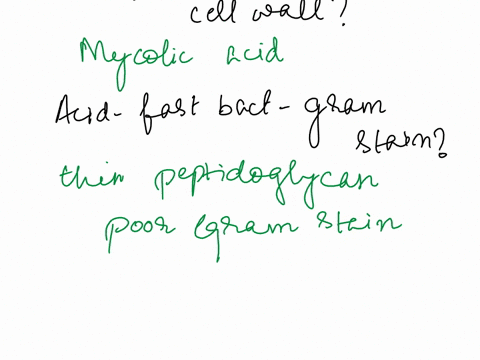 cell wall?
Mycolic acid
Acid-fast bact - gram
stain?
thin peptidoglycan
poor Gram stain